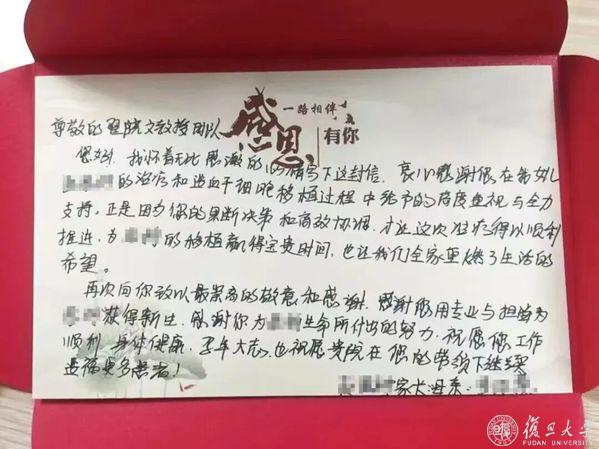 感恩
一路相伴
有你
尊敬的翟院 文教授团队
您好！我怀着无比感激的心情写下这封信。衷心感谢您在我女儿
的治疗和造血干细胞移植过程中给予的高度重视与全力
支持。正是因为您的果断决策和高效协调，才让这次治疗得以顺利
推进，为的移植赢得宝贵时间，也让我们全家重燃了生活的
希望。
再次向您致以最崇高的敬意和感谢。感谢您用专业与担当为
获得新生。感谢您为生命所付出的努力。祝愿您工作
顺利，身体健康，也祝愿贵院在您的带领下继续
造福更多患者！
家长母亲：
復旦大學
FUDAN UNIVERSITY